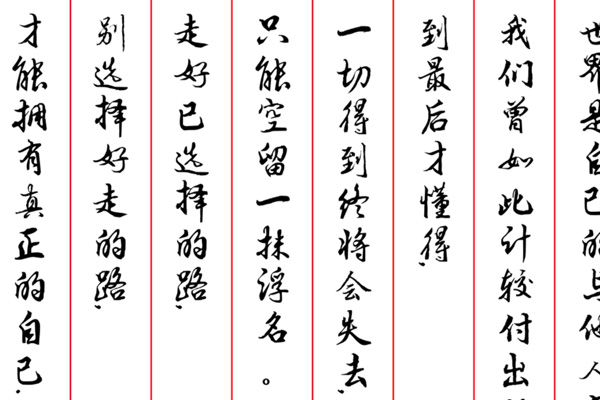 世界是自己的与他人
我们曾如此计较付出
到最后才懂得,
一切得到终将会失去,
只能空留一抹浮名。
走好已选择的路,
别选择好走的路,
才能拥有真正的自己,